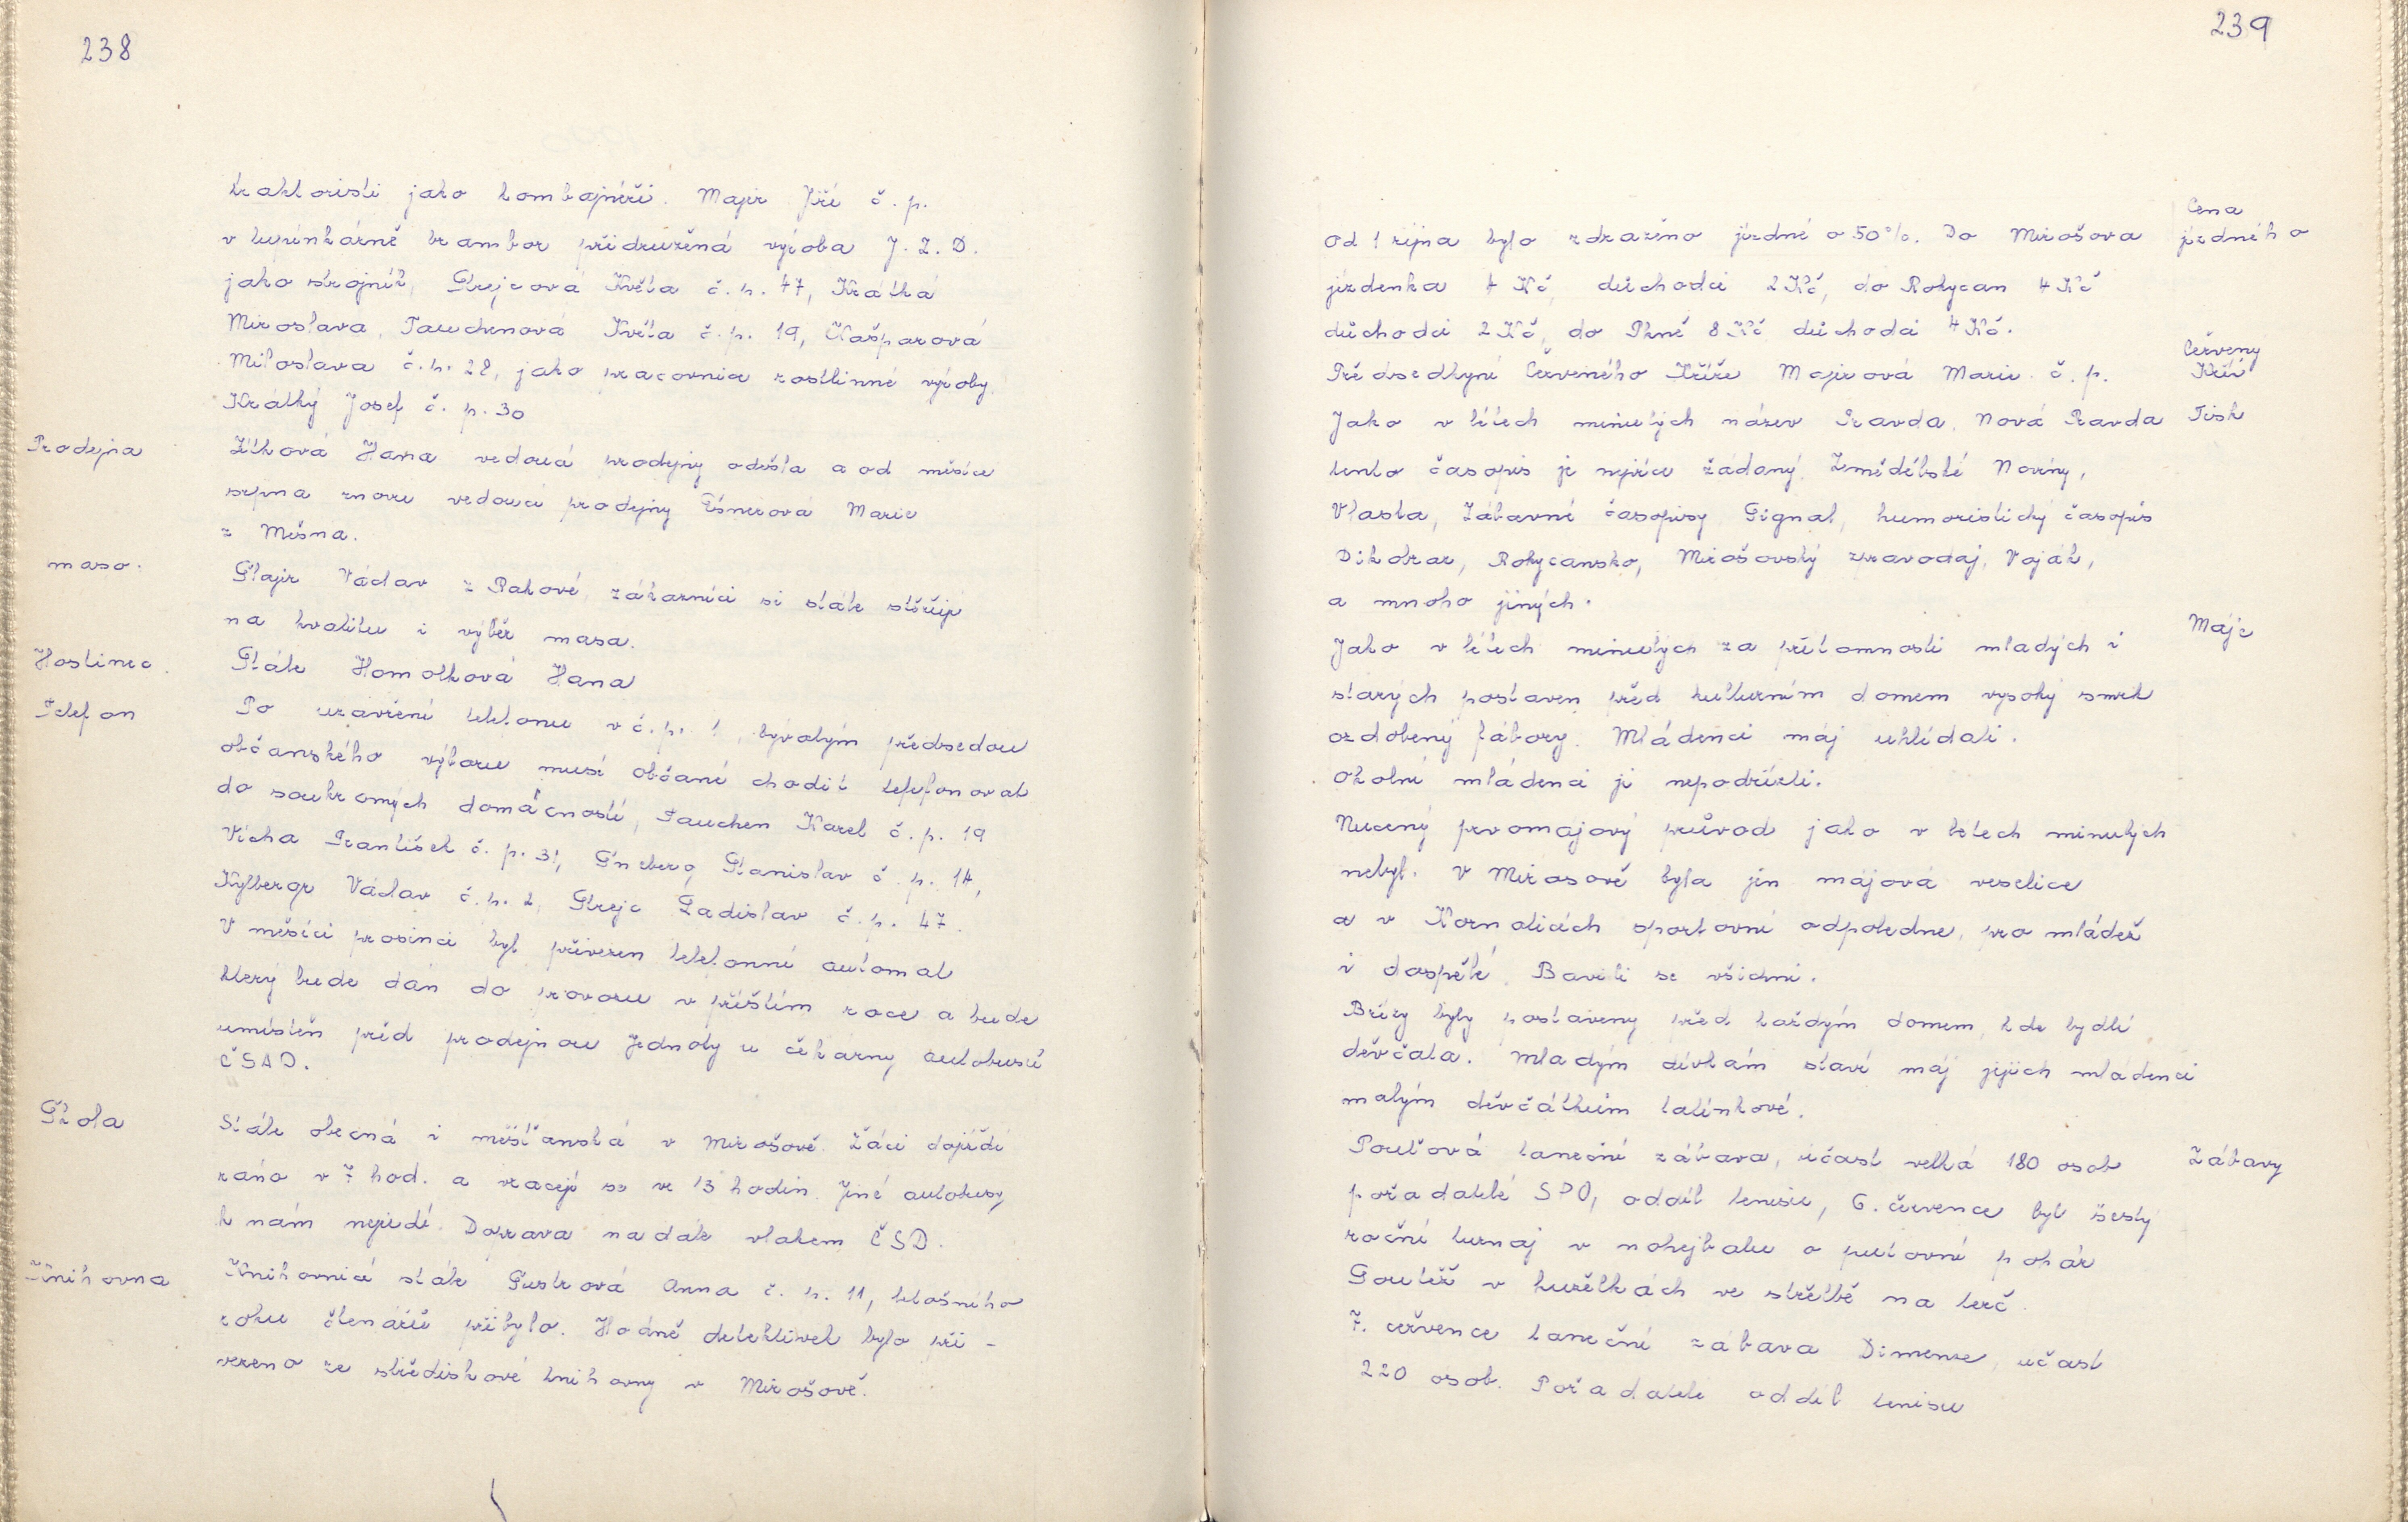 238
traktoristi jako kombajnéři. Majer Jiří č. p.
v lupínkárně brambor přidružená výroba J. Z. D.
jako strojník, Strejcová Květa č. p. 47, Krátká
Miroslava, Tauchenová Květa č. p. 19, Kašparová
Miloslava č. p. 28, jako pracovnice rostlinné výroby
Krátký Josef č. p. 30
Prodejna
Zítková Hana vedoucí prodejny odešla a od měsíce
srpna znovu vedoucí prodejny Marie
z Mešna.
maso.
Šlajr Václav z Rakové, zákazníci si stále stěžují
na kvalitu i výběr masa.
Hostinec
Stále Homolková Hana
Telefon
Po uzavření telefonu v č. p. 1, bývalým předsedou
občanského výboru musí občané chodit telefonovat
do soukromých domácností, Tauchen Karel č. p. 19
Vícha František č. p. 31, Šneberg Stanislav č. p. 14,
Kylbergr Václav č. p. 2, Strejc Ladislav č. p. 47.
V měsíci prosinci byl přivezen telefonní automat
který bude dán do provozu v příštím roce a bude
umístěn před prodejnou Jednoty u čekárny autobusů
ČSAD.
Škola
Stále obecná i měšťanská v Mirošově. Žáci dojíždí
ráno v 7 hod. a vracejí se ve 13 hodin. Jiné autobusy
k nám nejezdí. Doprava nadále vlakem ČSD.
Knihovna
Knihovnicí stále Šustrová Anna č. p. 11, letošního
roku čtenářů přibylo. Hodně detektivek bylo při-
vezeno ze střediskové knihovny v Mirošově.
239
Cena
jízdného
Od 1 října bylo zdraženo jízdné o 50%. Do Mirošova
jízdenka 4 Kč, důchodci 2 Kč, do Rokycan 4 Kč
důchodci 2 Kč, do Plzně 8 Kč důchodci 4 Kč.
Červený
Kříž
Předsedkyní Červeného Kříže Majerová Marie č. p.
Tisk
Jako v létech minulých název Pravda, Nová Pravda
tento časopis je nejvíce žádaný. Zemědělské Noviny,
Vlasta, Zábavné časopisy Signal, humoristický časopis
Dikobraz, Rokycansko, Mirošovský zpravodaj, Voják,
a mnoho jiných.
Máje
Jako v létech minulých za přítomnosti mladých i
starých postaven před kulturním domem vysoký smrk
ozdobený fábory. Mládenci máj uhlídali.
Okolní mládenci ji nepodřízli.
Nucený prvomájový průvod jako v letech minulých
nebyl. V Mirosově byla jen májová veselice
a v Kornaticích sportovní odpoledne, pro mládež
i dospělé. Bavili se všichni.
Břízy byly postaveny před každým domem, kde bydlí
děvčata. Mladým dívkám staví máj jejich mládenci
malým děvčátkům tatínkové.
Zábavy
Pouťová taneční zábava, účast velká 180 osob
pořadatelé SPO, oddíl tenisu, 6. července byl šestý
roční turnaj v nohejbalu o putovní pohár
Soutěž v kuželkách ve střelbě na terč.
7. cervence taneční zábava Dimense, účast
220 osob. Pořadatelé oddíl tenisu